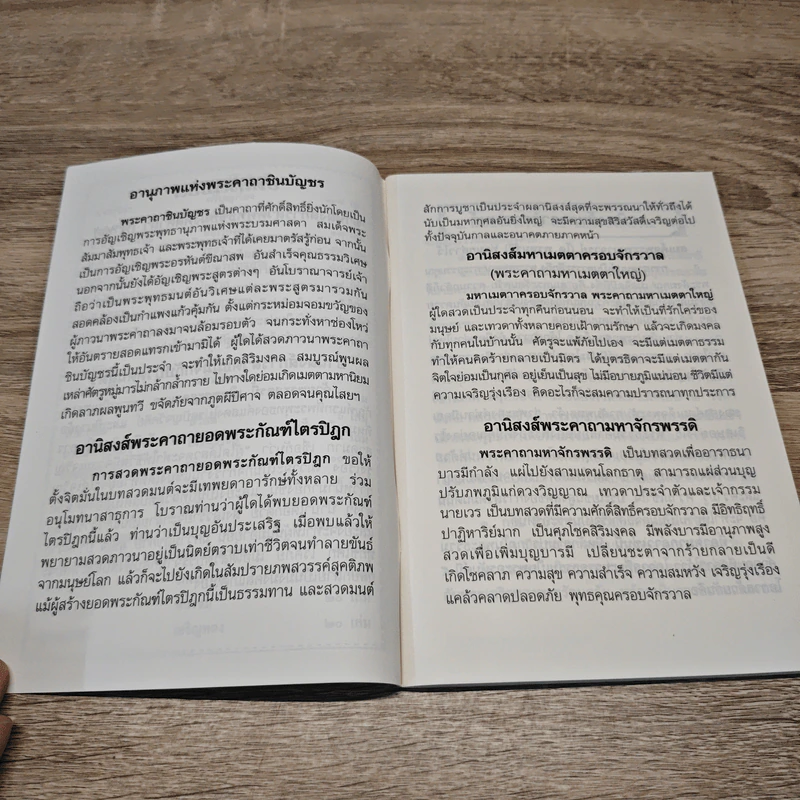 อานุภาพแห่งพระคาถาชินบัญชร
พระคาถาชินบัญชร เป็นคาถาที่ศักดิ์สิทธิ์ยิ่งนักโดยเป็น
การอัญเชิญพระพุทธานุภาพแห่งพระบรมศาสดา สมเด็จพระ
สัมมาสัมพุทธเจ้า และพระพุทธเจ้าที่ได้เคยมาตรัสรู้ก่อน จากนั้น
เป็นการอัญเชิญพระอรหันต์ขีณาสพ อันสำเร็จคุณธรรมวิเศษ
นอกจากนั้นยังได้อัญเชิญพระสูตรต่างๆ อันโบราณาจารย์เจ้า
ถือว่าเป็นพระพุทธมนต์อันวิเศษแต่ละพระสูตรมารวมกัน
สอดคล้องเป็นกำแพงแก้วคุ้มกัน ตั้งแต่กระหม่อมจอมขวัญของ
ผู้ภาวนาพระคาถาลงมาจนล้อมรอบตัว จนกระทั่งหาช่องโหว่
ให้อันตรายสอดแทรกเข้ามามิได้ ผู้ใดได้สวดภาวนาพระคาถา
ชินบัญชรนี้เป็นประจำ จะทำให้เกิดสิริมงคล สมบูรณ์พูนผล
เหล่าศัตรูหมู่มารไม่กล้ากล้ำกราย ไปทางใดย่อมเกิดเมตตามหานิยม
เกิดลาภผลพูนทวี ขจัดภัยจากภูตผีปีศาจ ตลอดจนคุณไสยฯ
อานิสงส์พระคาถายอดพระกัณฑ์ไตรปิฎก
การสวดพระคาถายอดพระกัณฑ์ไตรปิฎก ขอให้
ตั้งจิตมั่นในบทสวดมนต์จะมีเทพยดาอารักษ์ทั้งหลาย ร่วม
อนุโมทนาสาธุการ โบราณท่านว่าผู้ใดได้พบยอดพระกัณฑ์
ไตรปิฎกนี้แล้ว ท่านว่าเป็นบุญอันประเสริฐ เมื่อพบแล้วให้
พยายามสวดภาวนาอยู่เป็นนิตย์ตราบเท่าชีวิตจนทำลายขันธ์
จากมนุษย์โลก แล้วก็จะไปยังเกิดในสัมปรายภพสวรรค์สุคติภพ
แม้ผู้สร้างยอดพระกัณฑ์ไตรปิฎกนี้เป็นธรรมทาน และสวดมนต์
สักการบูชาเป็นประจำผลานิสงส์สุดที่จะพรรณนาให้ทั่วถึงได้
นับเป็นมหากุศลอันยิ่งใหญ่ จะมีความสุขสิริสวัสดิ์เจริญต่อไป
ทั้งปัจจุบันกาลและอนาคตภายภาคหน้า
อานิสงส์มหาเมตตาครอบจักรวาล
(พระคาถามหาเมตตาใหญ่)
มหาเมตาาครอบจักรวาล พระคาถามหาเมตตาใหญ่
ผู้ใดสวดเป็นประจำทุกคืนก่อนนอน จะทำให้เป็นที่รักใคร่ของ
มนุษย์ และเทวดาทั้งหลายคอยเฝ้าตามรักษา แล้วจะเกิดมงคล
กับทุกคนในบ้านนั้น ศัตรูจะแพ้ภัยไปเอง จะมีแต่เมตตาธรรม
ทำให้คนคิดร้ายกลายเป็นมิตร ได้บุตรธิดาจะมีแต่เมตตากัน
จิตใจย่อมเป็นกุศล อยู่เย็นเป็นสุข ไม่มีอบายภูมิแน่นอน ชีวิตมีแต่
ความเจริญรุ่งเรือง คิดอะไรก็จะสมความปรารถนาทุกประการ
อานิสงส์พระคาถามหาจักรพรรดิ
พระคาถามหาจักรพรรดิ เป็นบทสวดเพื่ออาราธนา
บารมีกำลัง แผ่ไปยังสามแดนโลกธาตุ สามารถแผ่ส่วนบุญ
ปรับภพภูมิแก่ดวงวิญญาณ เทวดาประจำตัวและเจ้ากรรม
นายเวร เป็นบทสวดที่มีความศักดิ์สิทธิ์ครอบจักรวาล มีอิทธิฤทธิ์
ปาฏิหาริย์มาก เป็นศุภโชคสิริมงคล มีพลังบารมีอานุภาพสูง
สวดเพื่อเพิ่มบุญบารมี เปลี่ยนชะตาจากร้ายกลายเป็นดี
เกิดโชคลาภ ความสุข ความสำเร็จ ความสมหวัง เจริญรุ่งเรือง
แคล้วคลาดปลอดภัย พุทธคุณครอบจักรวาล